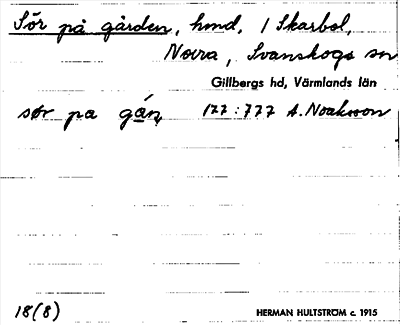 Sör på gården, hmd, 1 Skarbol,
Norra, Svanskogs sn
Gillbergs hd, Värmlands län
sør pa gán 177:777 A. Noakson
18(8)
HERMAN HULTSTRÖM c. 1915